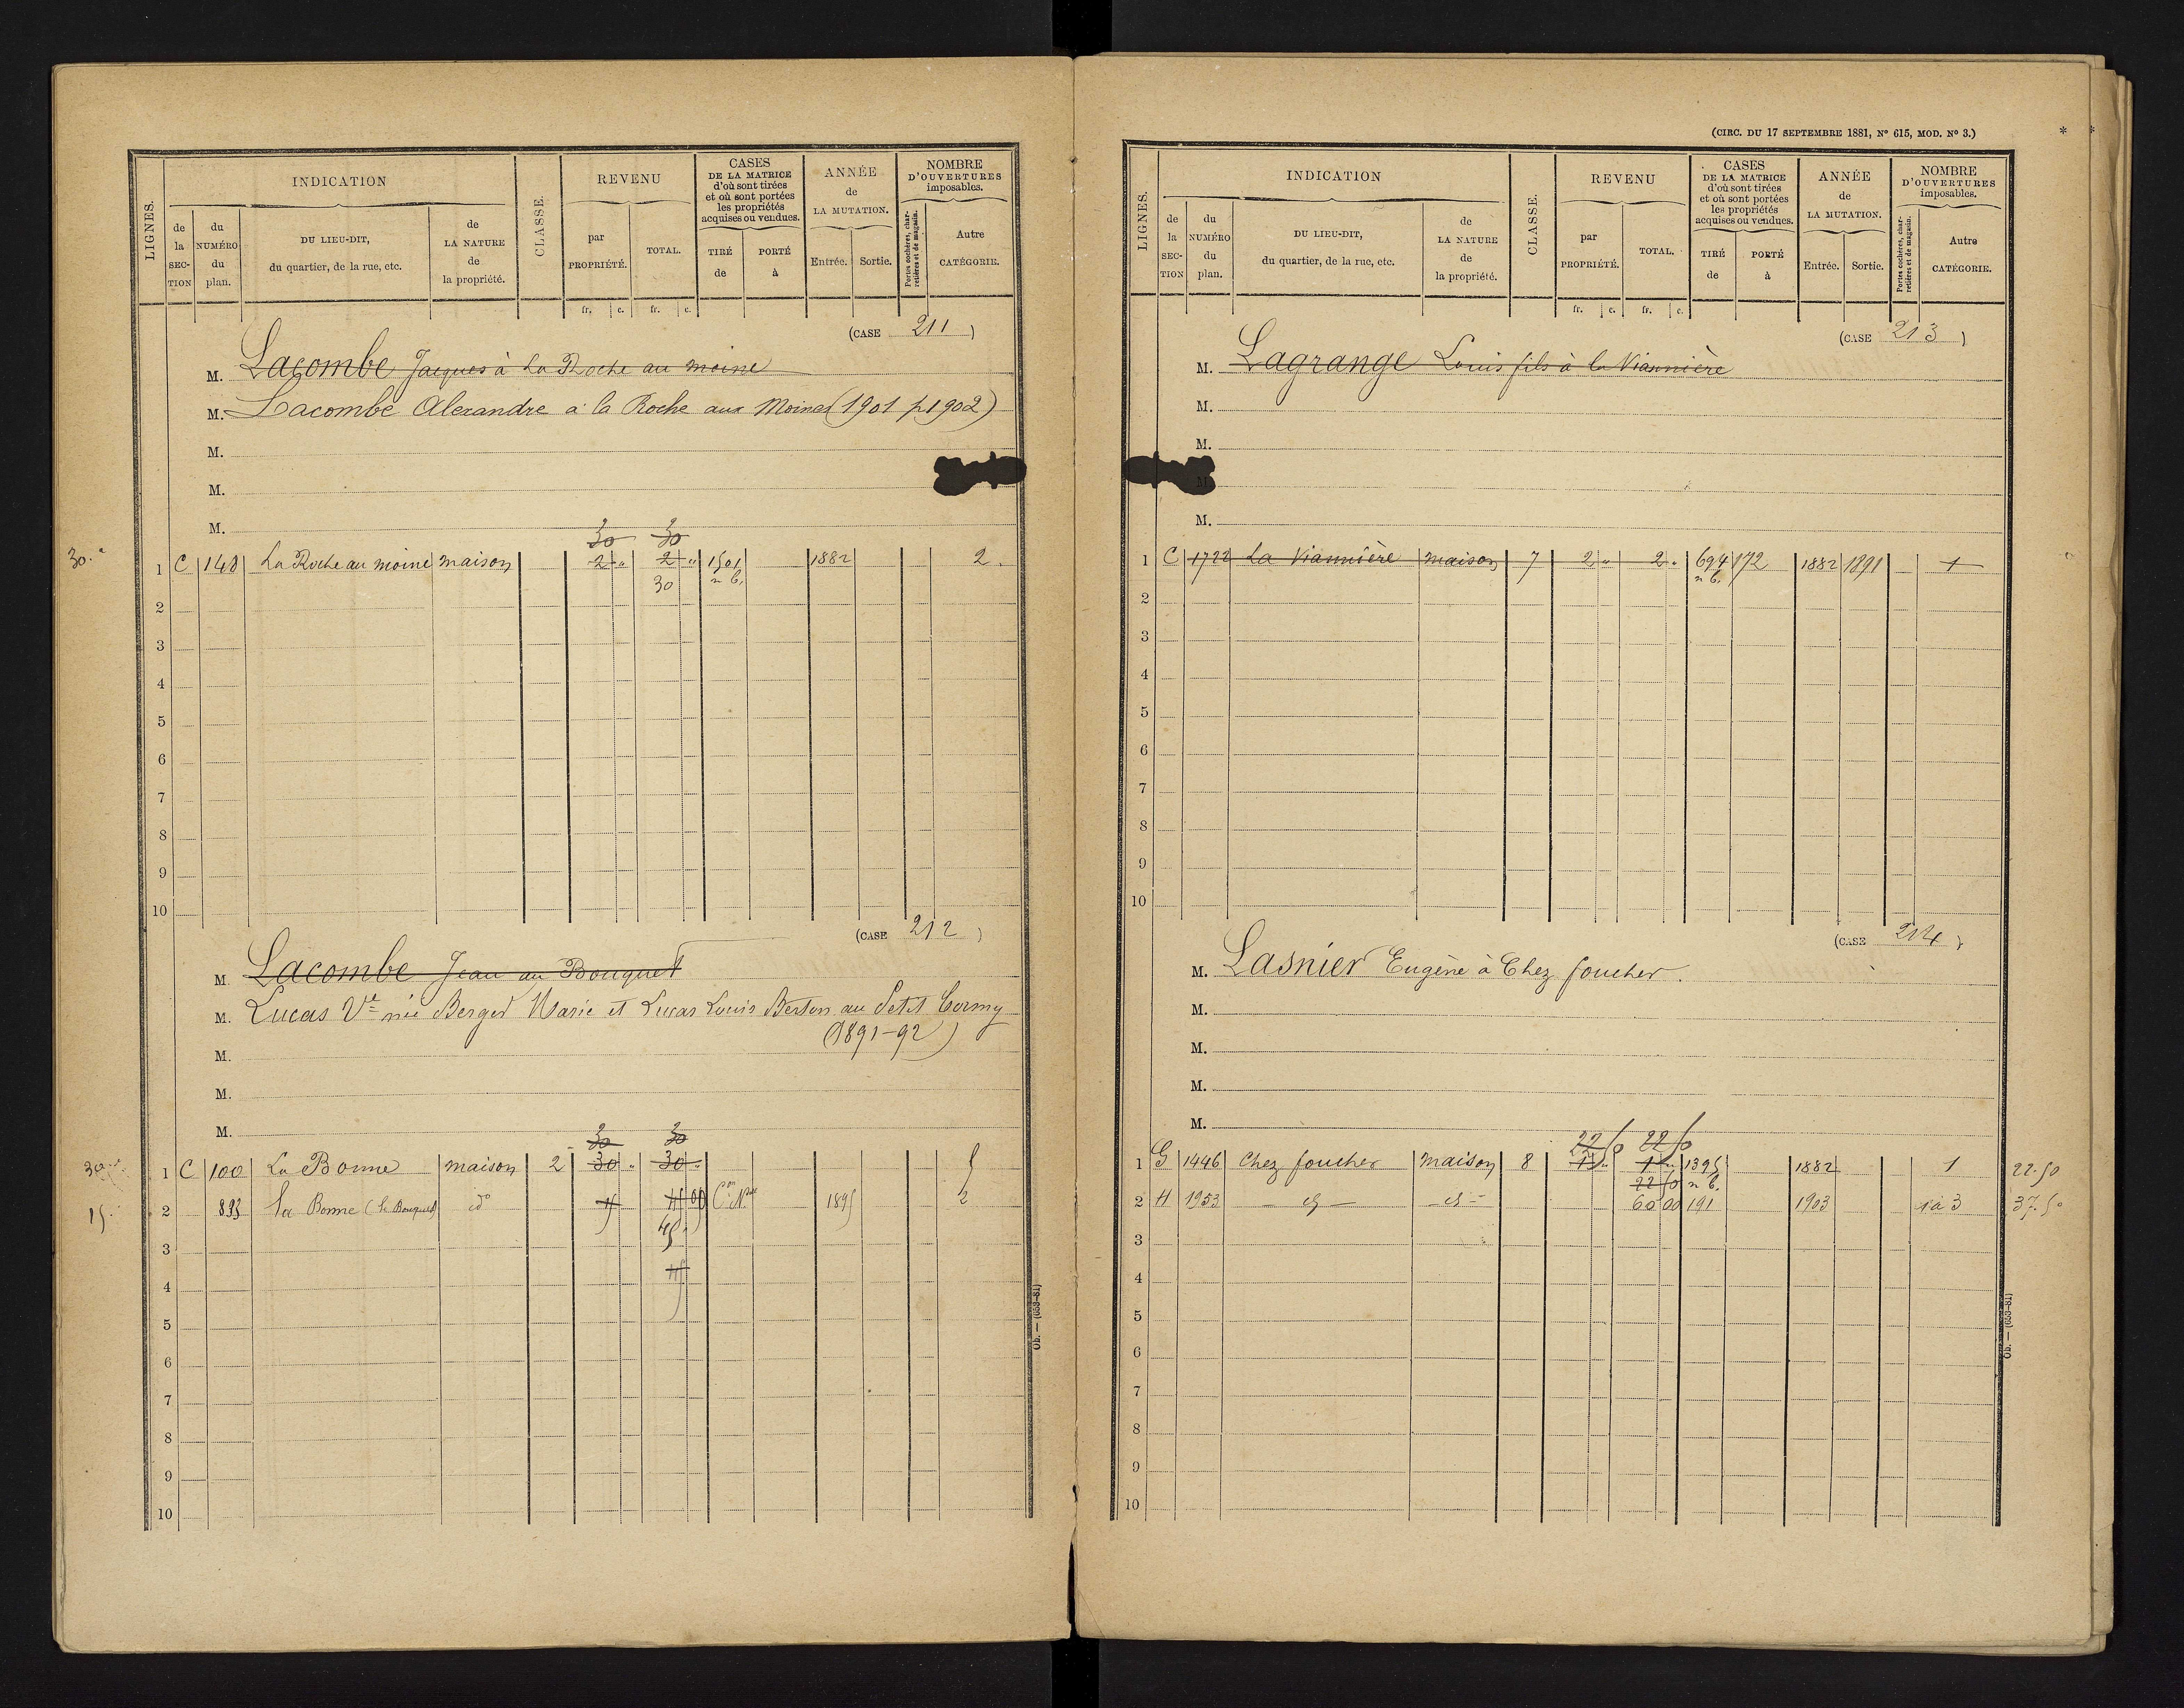 (CIRC. DU 17 SEPTEMBRE 1881, N° 615, MOD. N° 3.)
LIGNES.
INDICATION
de la SECTION
du NUMÉRO du plan.
DU LIEU-DIT, du quartier, de la rue, etc.
de LA NATURE de la propriété.
CLASSE.
REVENU
par PROPRIÉTÉ.
TOTAL.
CASES DE LA MATRICE d'où sont tirées et où sont portées les propriétés acquises ou vendues.
TIRÉ de
PORTÉ à
ANNÉE de LA MUTATION.
Entrée.
Sortie.
NOMBRE D'OUVERTURES imposables.
Portes cochères, charretières et de magasin.
Autre CATÉGORIE.
fr. c. fr. c.
(CASE 211)
M. Lacombe Jacques à La Roche au moine
M. Lacombe Alexandre à la Roche aux Moines (1901 p 1902)
M.
M.
M.
30 30
30. 1 C 148 La Roche au moine maison 2 " 2 " 1501 1882 2.
30 n b.
2
3
4
5
6
7
8
9
10
(CASE 212)
M. Lacombe Jean au Bouquet
M. Lucas Ve née Berger Marie et Lucas Louis Berton au Petit Cormy
(1891-92)
M.
M.
M.
30 30
30 1 C 100 La Borme maison 2 30 " 30 "
15. 2 893 La Borme (le Bouquet) do 15 15 00 Con Nlle 1895 2
45
3
4
5
6
7
8
9
10
Ob. — (653-81)
LIGNES.
INDICATION
de la SECTION
du NUMÉRO du plan.
DU LIEU-DIT, du quartier, de la rue, etc.
de LA NATURE de la propriété.
CLASSE.
REVENU
par PROPRIÉTÉ.
TOTAL.
CASES DE LA MATRICE d'où sont tirées et où sont portées les propriétés acquises ou vendues.
TIRÉ de
PORTÉ à
ANNÉE de LA MUTATION.
Entrée.
Sortie.
NOMBRE D'OUVERTURES imposables.
Portes cochères, charretières et de magasin.
Autre CATÉGORIE.
fr. c. fr. c.
(CASE 213)
M. Lagrange Louis fils à la Viannière
M.
M.
M.
M.
1 C 1722 La Viannière maison 7 2 " 2 " 694 172 1882 1891 1
n b.
2
3
4
5
6
7
8
9
10
(CASE 214)
M. Lasnier Eugène à Chez foucher.
M.
M.
M.
M.
22 50 22 50
1 G 1446 Chez foucher maison 8 1 " 1 " 1395 1882 1 22.50
22 50 n b.
2 H 1953 60 00 191 1903 1 à 3 37.50
3
4
5
6
7
8
9
10
Ob. — (653-81)